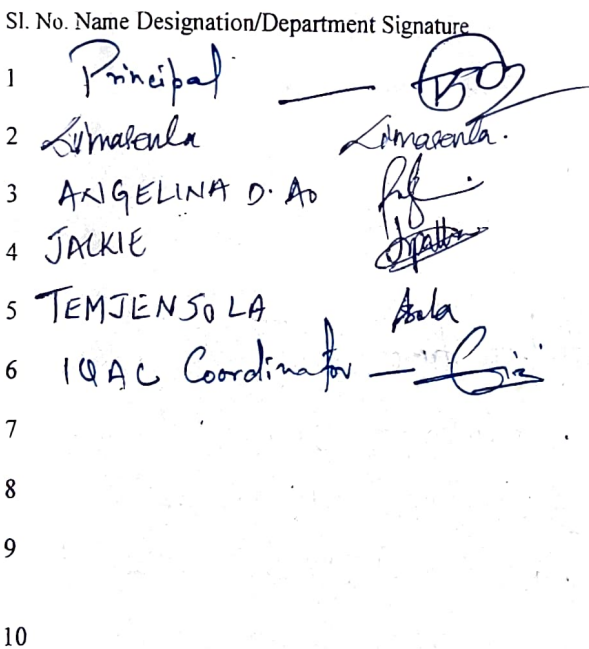 Sl. No. Name Designation/Department Signature
1 Principal —
2 Limasenla Limasenla.
3 ANGELINA D. AO
4 JACKIE
5 TEMJENSOLA Asola
6 IQAC Coordinator —
7
8
9
10